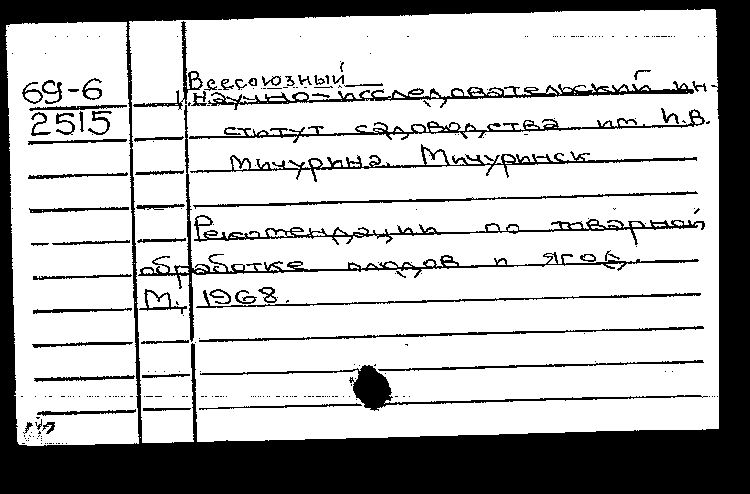 69-6
2515
Всесоюзный
научно-исследовательский ин-
ститут садоводства им. И.В.
Мичурина. Мичуринск
Рекомендации по товарной
обработке плодов и ягод.
М., 1968.